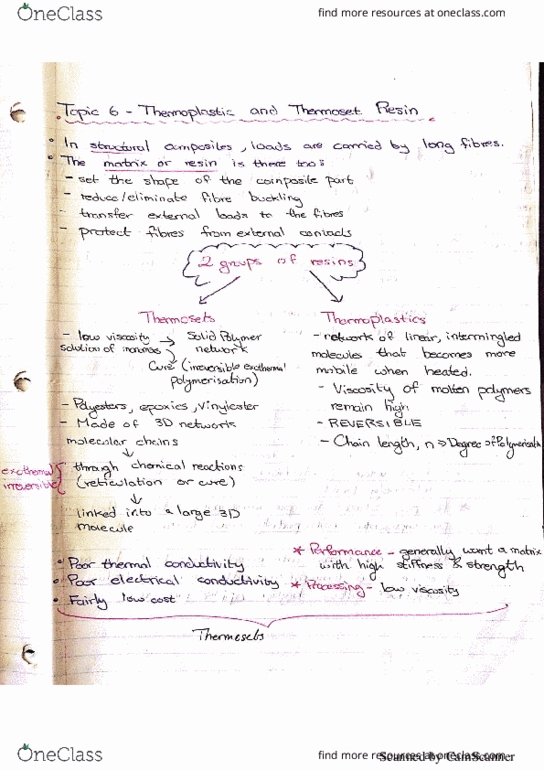 OneClass
find more resources at oneclass.com
Topic 6 - Thermoplastic and Thermoset Resin
• In structural composites, loads are carried by long fibres.
• The matrix or resin is there to:
- set the shape of the composite part
- reduce/eliminate fibre buckling
- transfer external loads to the fibres
- protect fibres from external contacts
2 groups of resins
Thermosets
- low viscosity → Solid Polymer
solution of network
Cure (irreversible exothermal
polymerisation)
- Polyesters, epoxies, vinylester
- Made of 3D networks
molecular chains
↓
exothermal
irreversible
through chemical reactions
(reticulation or cure)
↓
linked into a large 3D
molecule
Thermoplastics
- networks of linear, intermingled
molecules that becomes more
mobile when heated.
- Viscosity of molten polymers
remain high
- REVERSIBLE
- Chain length, n ⇒ Degree of Polymerisation
• Poor thermal conductivity
• Poor electrical conductivity
• Fairly low cost
* Performance - generally want a matrix
with high stiffness & strength
* Processing - low viscosity
Thermosets
OneClass
find more resources at oneclass.com
Scanned by CamScanner